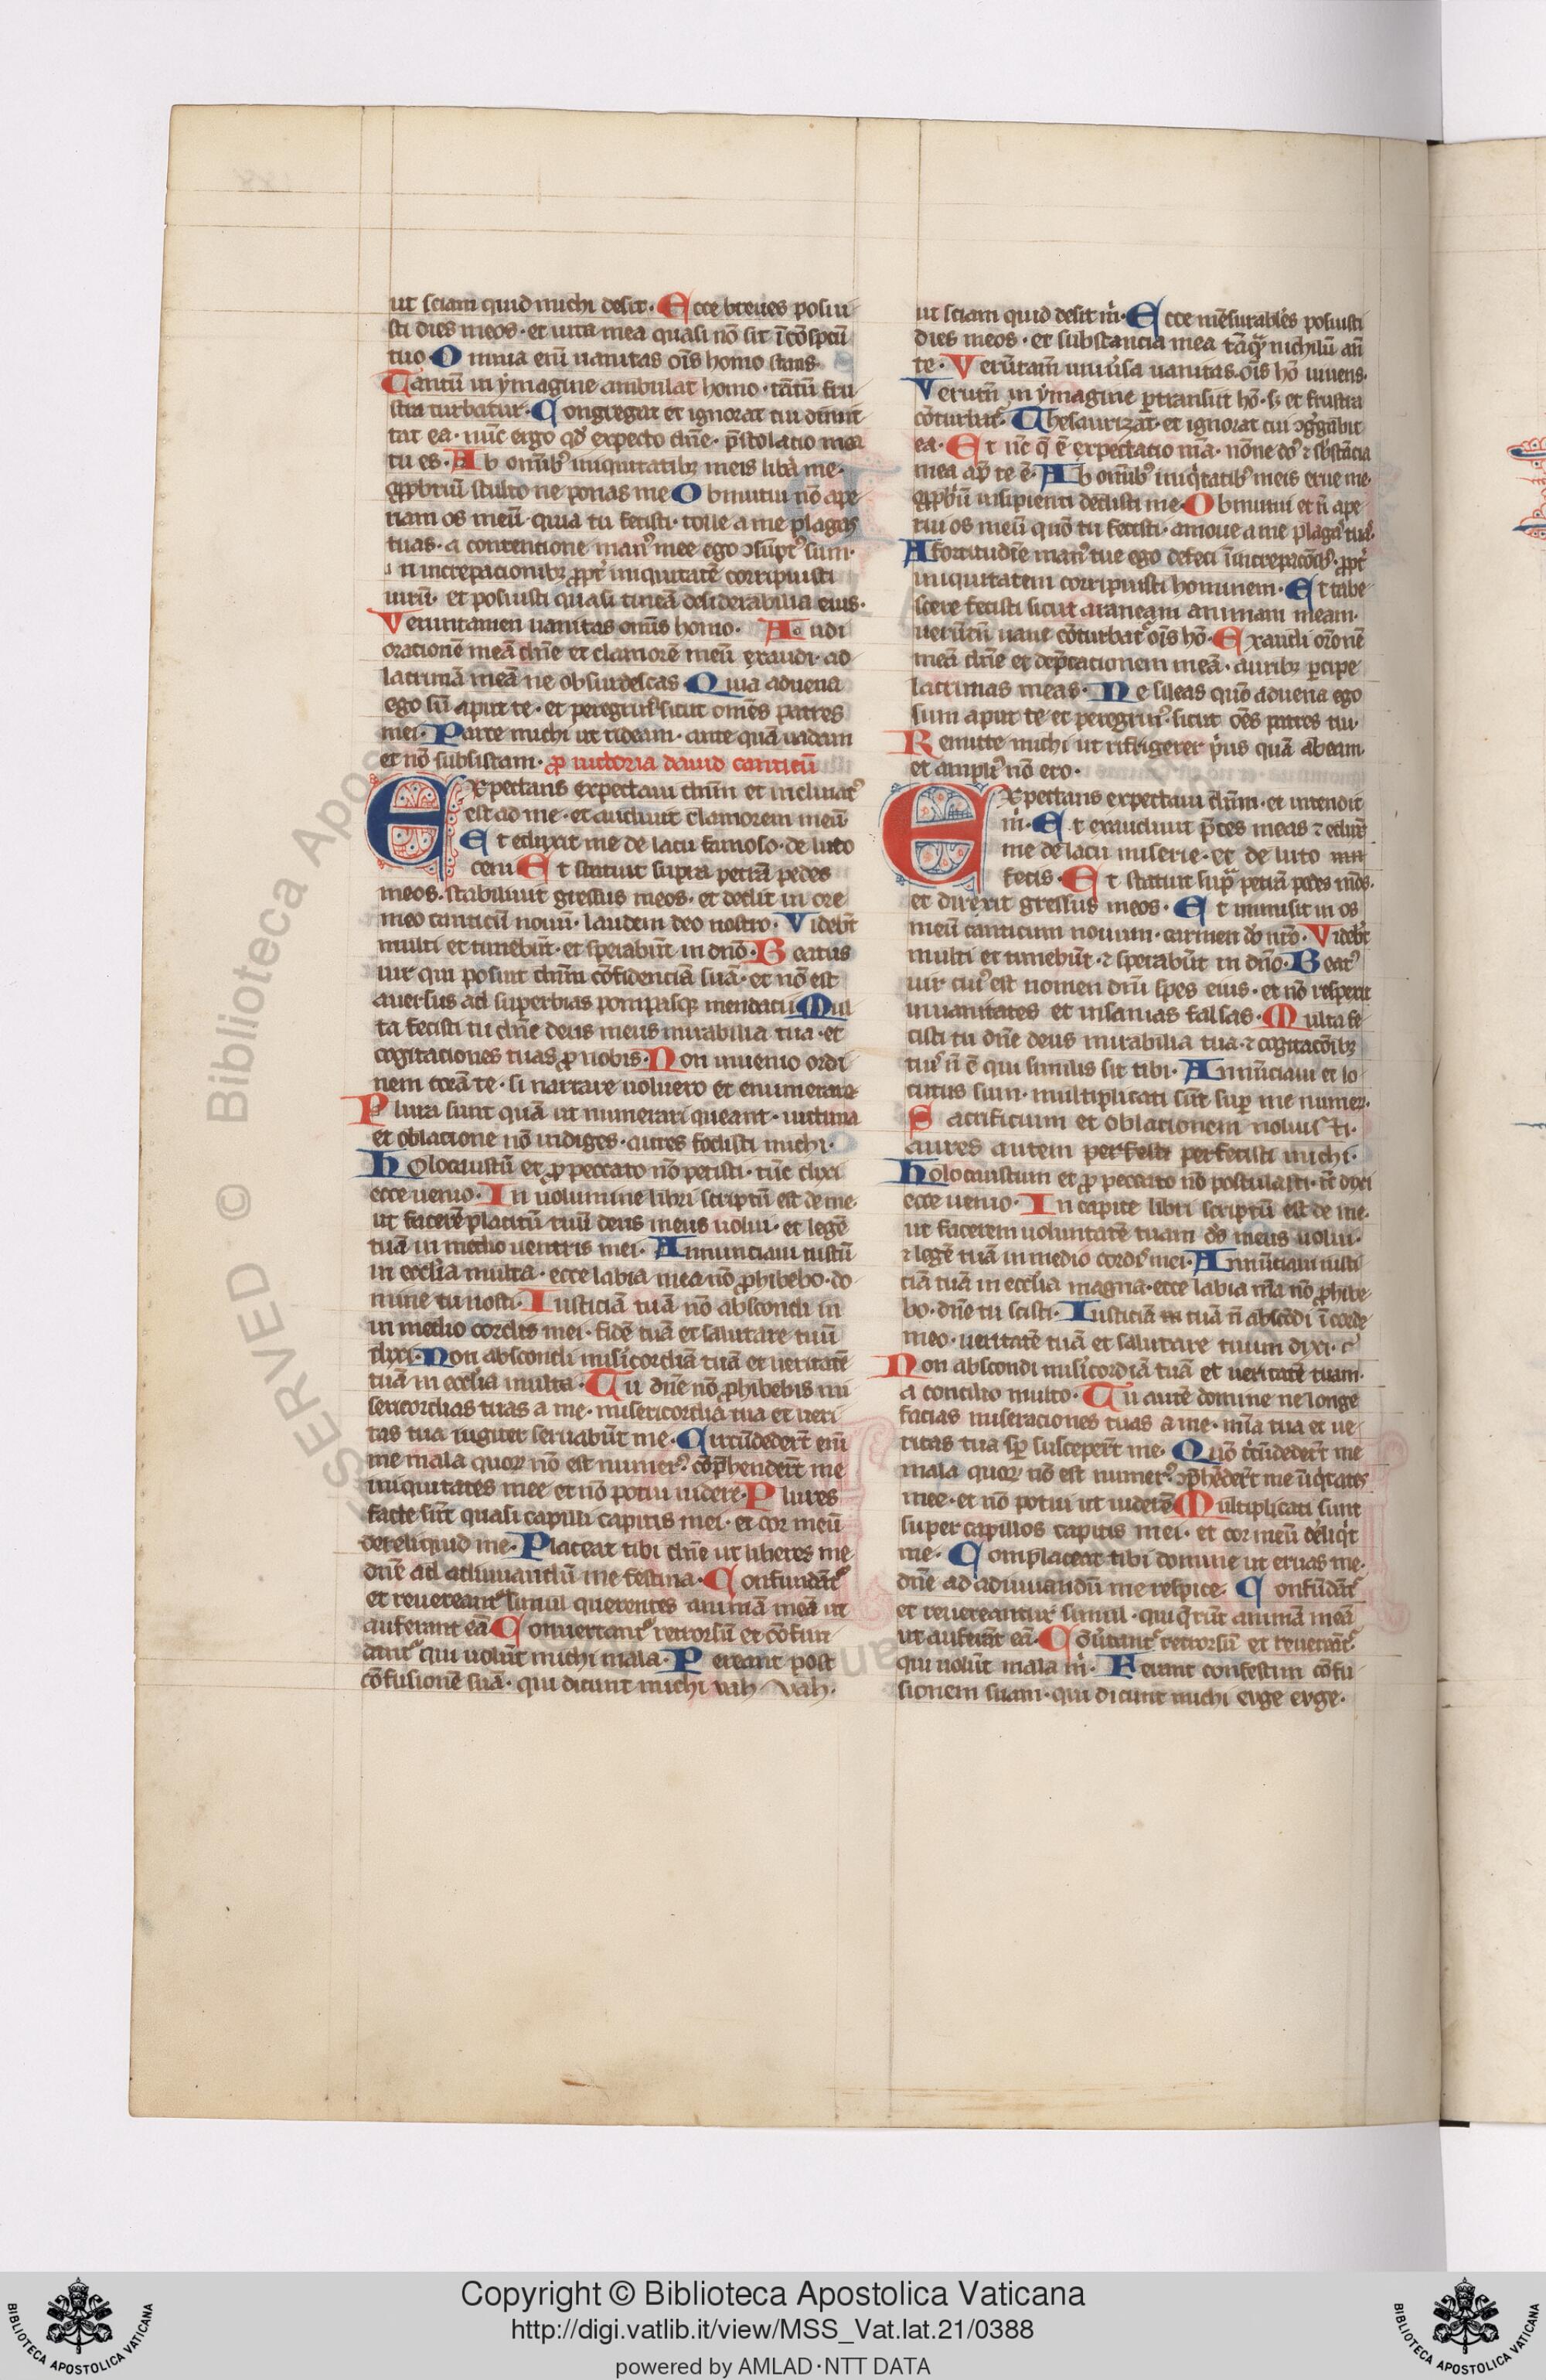 ut sciam quid michi desit · Ecce breues posui
sti dies meos · et uita mea quasi nō sit ī cōspcū
tuo Omnia enī uanitas oīs homo stans
Tantū in ymagine ambulat homo · tātū fru
stra turbatur · Congregat et ignorat cui dimit
tat ea · nūc ergo qd expecto dn̄e · p̄stolatio mea
tu es · Ab omībꝰ iniquitatibꝫ meis libā me ·
opprobriū stulto ne ponas me Obmutui nō ape
riam os meū · quia tu fecisti · tolle a me plagas
tuas · a contentione manꝰ mee ego ↄsūptꝰ sum ·
in increpacionibꝫ ꝓpt iniquitatē corripuisti
uirū · et posuisti quasi tineā desiderabilia eius ·
Veruntamen uanitas omīs homo · Audi
orationē meā dn̄e et clamorē meū exaudi · ad
lacrimā meā ne obsurdescas · Quia aduena
ego sū aput te · et peregrinꝰ sicut omēs patres
mei · Parce michi ut rideam · ante quā uadam
et nō subsistam · ꝓ uictoria dauid canticū
Expectans expectaui dn̄m et inclinatꝰ
est ad me · et audiuit clamorem meū
Et eduxit me de lacu famoso · de luto
ceni Et statuit supra petrā pedes
meos · stabiliuit gressus meos · et dedit in ore
meo canticū nouū · laudem deo nostro · Videbt̄
multi et timebūt · et sperabūt in dn̄o · Beatus
uir qui posuit dn̄m cōfidenciā suā · et nō est
auersus ad superbias pompasqꝫ mendacii Mul
ta fecisti tu dn̄e deus meus mirabilia tua · et
cogitaciones tuas ꝓ nobis · Non inuenio ordi
nem corā te · si narrare uoluero et enumerare
Plura sunt quā ut numerari queant · uictima
et oblacione nō indiges · aures fodisti michi ·
Holocaustū et ꝓ peccato nō petisti · tūc dixi
ecce uenio · In uolumine libri scriptū est de me ·
ut facerē placitū tuū deus meus uolui · et legē
tuā in medio uentris mei · Annunciaui iustū
in ecclīa multa · ecce labia mea nō ꝓhibebo · do
mine tu nosti · Iusticiā tuā nō abscondi in
in medio cordis mei · fidē tuā et salutare tuū
dixi · Non abscondi misicordiā tuā et ueritatē
tuā in ecclīa multa · Tu dn̄e nō ꝓhibebis mi
sericordias tuas a me · misericordia tua et ueri
tas tua iugiter seruabūt me · Circūdedert̄ enī
me mala quoꝝ nō est numerꝰ · cōp̄hendert̄ me
iniquitates mee et nō potui uidere · Plures
facte sūt quasi capilli capitis mei · et cor meū
dereliquid me · Placeat tibi dn̄e ut liberes me
dn̄e ad adiuuandū me festina · Confundātᷣ
et reuereantᷣ simul querentes animā meā ut
auferant eā Conuertantᷣ retrorsū et cōfun
dantᷣ qui uolūt michi mala · Pereant post
cōfusionē suā · qui dicunt michi uah uah ·
ut sciam quid desit m̄ · Ecce mēsurabiles posuisti
dies meos · et substancia mea tāqꝫ nichilū an̄
te · Verūtam̄ uniūsa uanitas · oīs hō uiuens ·
Verutn̄ in ymagine ptransit hō · s; et frustra
cōturbatᷣ · Thesaurizat · et ignorat cui ↄgˢgabit
ea · Et nc̄ q̄ ē expectatio mā · nōne dꝰ ⁊ sbstācia
mea ap̄ te ē · Ab omībꝰ iniqtatibꝰ meis erue me ·
opprobriū insipienti dedisti me · Obmutui et n̄ ape
rui os meū quō tu fecisti · amoue a me plagas tuas ·
A fortitudīe manꝰ tue ego defeci ī increpacōibꝰ · ꝓpt
iniquitatem corripuisti hominem · Et tabe
scere fecisti sicut araneam animam meam ·
uerūtn̄ uane cōturbatᷣ oīs hō · Exaudi orōnē
meā dn̄e et dep̄cationem meā · auribꝫ pcipe
lacrimas meas · Ne sileas quō aduena ego
sum aput te et peregrinꝰ · sicut oēs patres mi ·
Remitte michi ut rifrigerer pius quā abeam
et ampliꝰ nō ero ·
Expectans expectaui dn̄m · et intendit
m̄ · Et exaudiuit p̄ces meas ⁊ eduxit
me de lacu miserie · et de luto
fecis · Et statuit supᵃ petrā pedes meos ·
et direxit gressus meos · Et inmisit in os
meū canticum nouum · carmen do nr̄o · Videbt̄
multi et timebūt · ⁊ sperabūt in dn̄o · Beatꝰ
uir cuiꝰ est nomen dn̄i spes eius · et nō respexit
in uanitates et insanias falsas · Multa fe
cisti tu dn̄e deus mirabilia tua · ⁊ cogitacōibꝫ
tuis n̄ ē qui similis sit tibi · Annūciaui et lo
cutus sum · multiplicati sūt sup me numer ·
Sacrificium et oblationem noluisti ·
aures autem perfecisti michi ·
holocaustum et ꝓ peccato nō postulasti · tc̄ dixi
ecce uenio · In capite libri scriptū est de me ·
ut facerem uoluntatē tuam ds̄ meus uolui ·
⁊ legē tuā in medio cordis mei · Annūciaui iusti
ciā tuā in ecclīa magna · ecce labia mā nō ꝓhibe
bo · dn̄e tu scisti · Iusticiā tuā n̄ abscōdi ī corde
meo · ueritatē tuā et salutare tuum dixi ·
Non abscondi misicordiā tuā et ueritatē tuam ·
a concilio multo · Tu autē domine ne longe
facias miseraciones tuas a me · mīa tua et ue
ritas tua sp̄ suscepert̄ me · Quō circūdedert̄ me
mala quoꝝ nō est numerꝰ · ↄp̄hēdert̄ me iniqtates
mee · et nō potui ut uiderē Multiplicati sunt
super capillos capitis mei · et cor meū deliqt
me · Complaceat tibi domine ut eruas me ·
dn̄e ad adiuuandū me respice · Confūdātᷣ
et reuereantur simul · qui qrūt animā meā
ut auferāt eā · Cōūtantᷣ retrorsū et reuerātᷣ
qui uolūt mala m̄ · Ferant confestim cōfu
sionem suam · qui dicunt michi euge euge ·
© Biblioteca Apos
SERVED
Copyright © Biblioteca Apostolica Vaticana
http://digi.vatlib.it/view/MSS_Vat.lat.21/0388
powered by AMLAD·NTT DATA
BIBLIOTECA APOSTOLICA VATICANA
BIBLIOTECA APOSTOLICA VATICANA